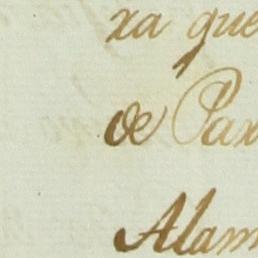 xa que
de Pax
Alam